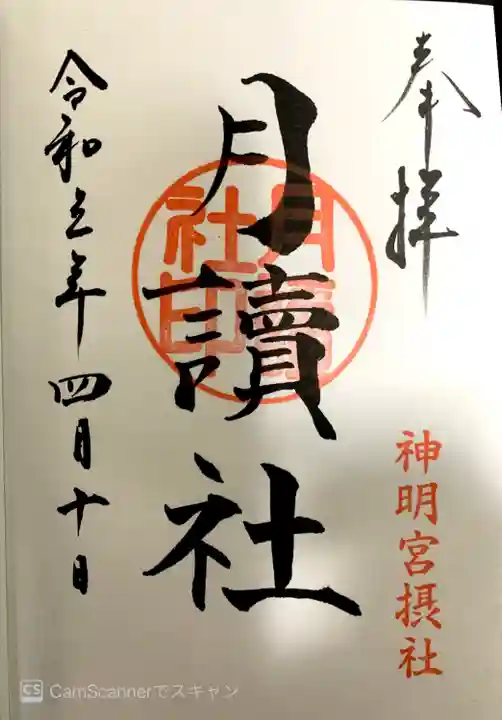 奉拝
神明宮摂社
月讀社
月讀社印
令和五年四月十日
CS CamScannerでスキャン